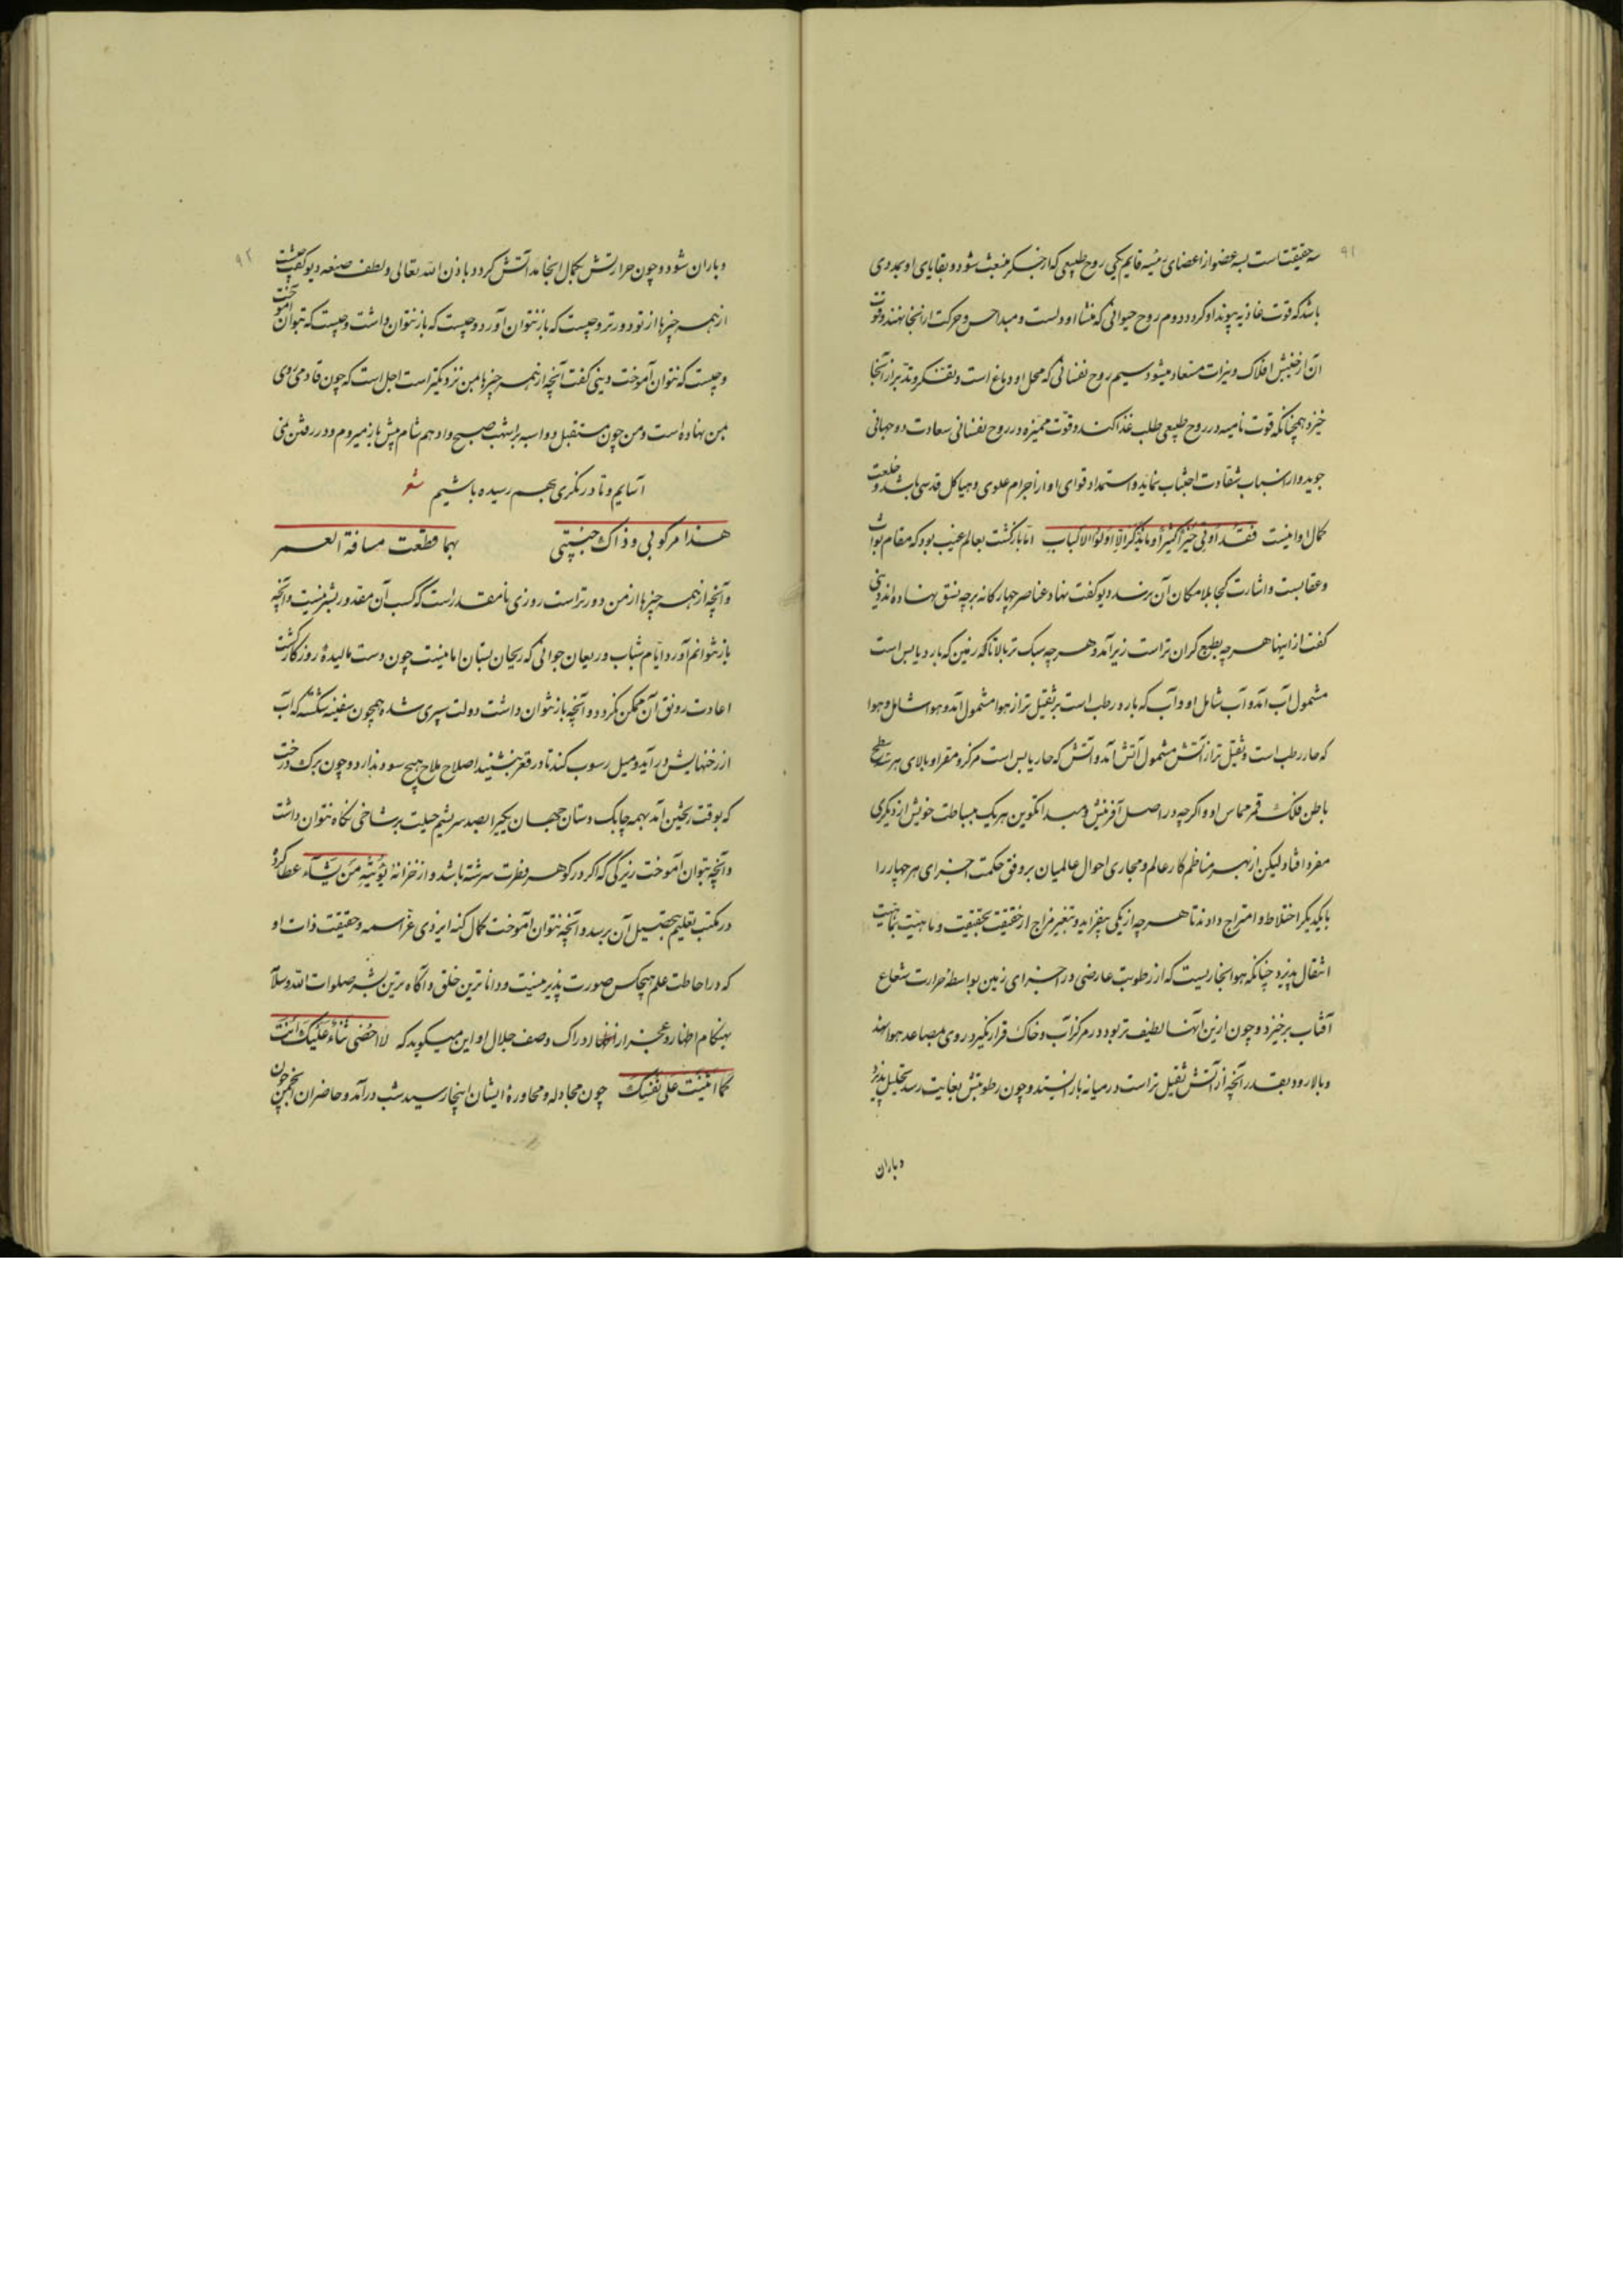 ۹۱
سه حقیقتست بسه عضو از اعضای رئیسه قایم یکی روح طبیعی که از جگر منبعث شود و بقایای او بمددی
باشد که قوت غاذیه بپیوند او گردد دوم روح حیوانی که منشأ او دلست و مبدا حس و حرکت از اینجا نهند و قوت
آن از جنبش افلاک و نیرات مستعاد میشود سیم روح نفسانی که محل او دماغ است و تفکر و تدبر از آنجا
خیزد و همچنانکه قوت نامیه در روح طبیعی طلب غذا کند و قوت ممیزه در روح نفسانی سعادت دو جهانی
جوید و از اسباب شقاوت اجتناب نماید و استمداد قوای او از اجرام علوی و هیاکل قدسی باشد و خلعت
کمال او اینست فَقَد اُوتِیَ خَیْرًا کَثیرًا وَما یَذَّکَّرُ اِلّا اُولُوا الاَلبابِ اما بازگشت بعالم غیب بود که مقام ثواب
و عقابست و اشارت کجا بلا مکان آن نرسد دیو گفت نهاد عناصر چهارگانه بر چه نسق نهاده‌اند دینی
گفت از اینها هرچه بطبع گران‌تر است زیر آمد و هرچه سبک‌تر بالا تا که زمین که بارد یابس است
مشمول آب آمد و آب شامل او و آب که بارد رطب است بر ثقیل‌تر از هوا مشمول آمد و هوا شامل و هوا
که حار رطب است و ثقیل‌تر از آتش مشمول آتش آمد و آتش که حار یابس است مرکز و مقر او بالای هر سه سطح
باطن فلک قمر مماس او و اگرچه در اصل آفرینش و مبدا تکوین هر یک ببساطت خویش از دیگری
مفرد افتاد لیکن از بهر مناظم کار عالم و مجاری احوال عالمیان بر وفق حکمت اجزای هر چهار را
با یکدیگر اختلاط و امتزاج دادند تا هرچه از یکی بیفزاید و بتغیر مزاج از حقیقت بحقیقت و ماهیت بماهیت
انتقال پذیرد چنانکه هوا بخاریست که از رطوبت عارضی در اجزای زمین بواسطه حرارت شعاع
آفتاب برخیزد و چون ازین آنها لطیف‌تر بود در مرکز آب و خاک قرار نگیرد روی بمصاعد هوا نهد
و بالا رود بقدر آنچه از آتش ثقیل‌تر است در میانه باز ایستد و چون رطوبتش بغایت رسد تحلیل پذیرد
و باران
۹۲
و باران شود و چون حرارتش بکمال انجامد آتش گردد باذن الله تعالی و لطف صنعه دیو گفت چیست
از همه چیزها از تو دورتر و چیست که باز نتوان آورد و چیست که باز نتوان داشت و چیست که بتوان آموخت
و چیست که نتوان آموخت دینی گفت آنچه از همه چیزها بمن نزدیکتر است اجل است که چون قادمی روی
بمن نهاده است و من چون مستقبل دو اسبه بر اشهب صبح و ادهم شام پیش باز میروم و در رفتن نمی
آسایم و تا در نگری بهم رسیده باشیم شعر
هذا مرکوبی و ذاک جنیبتی بهما قطعت مسافة العمر
و آنچه از همه چیزها از من دورتر است روزی نا مقدر است که کسب آن مقدور بشر نیست و آنچه
باز نتوانم آورد ایام شباب و ریعان جوانی که ریحان بستان امانیست چون دست مالیدهٔ روزگار گشت
اعادت رونق آن ممکن نگردد و آنچه باز نتوان داشت دولت سپری شده همچون سفینه شکسته که آب
از رخنهایش درآید و میل رسوب کند تا در قعر بنشیند اصلاح ملاح هیچ سود ندارد و چون برگ درخت
که بوقت ریختن آمد بهمه چابک دستان جهان یکی را بصد سریشم حیلت بر شاخی نگاه نتوان داشت
و آنچه بتوان آموخت زیرکی که اگر در گوهر فطرت سرشته باشد و از خزانهٔ یُؤتیهِ مَن یَشاء عطا کرده
در مکتب تعلیم بتحصیل آن برسد و آنچه نتوان آموخت کمال کنه ایزدی عز اسمه و حقیقت ذات او
که در احاطت علم هیچکس صورت پذیر نیست و داناترین خلق و آگاه‌ترین بشر صلوات الله و سلامه
بهنگام اظهار عجز از ادراک وصف جلال او این میگوید که لا اُحصی ثَناءً عَلَیکَ اَنتَ
کَما اَثنَیتَ عَلی نَفسِکَ چون مجادله و محاورهٔ ایشان اینجا رسید شب درآمد و حاضران انجمن چون